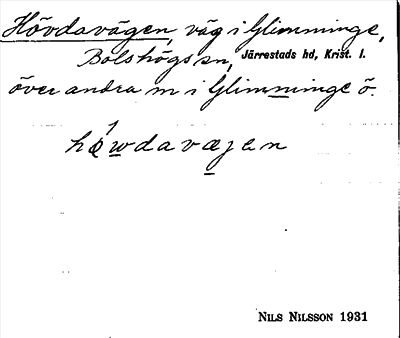 Hövdavägen, väg i Glimminge,
Bolshögs sn, Järrestads hd, Krist. l.
över andra m i Glimminge ö.
hǿwdavæjen
NILS NILSSON 1931